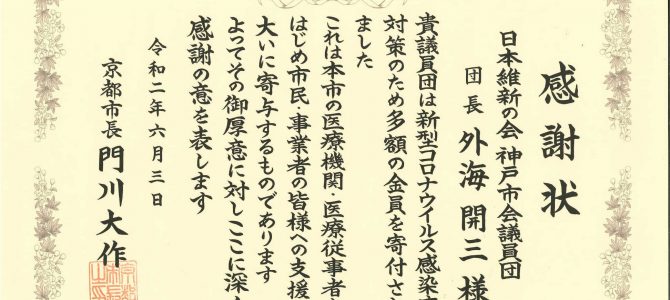 感謝状
日本維新の会 神戸市会議員団
団長 外海 開三 様
貴議員団は新型コロナウイルス感染
対策のため多額の金員を寄付さ
ました
これは本市の医療機関・医療従事者
はじめ市民・事業者の皆様への支援
大いに寄与するものであります
よってその御厚意に対しここに深
感謝の意を表します
令和二年六月三日
京都市長 門川大作